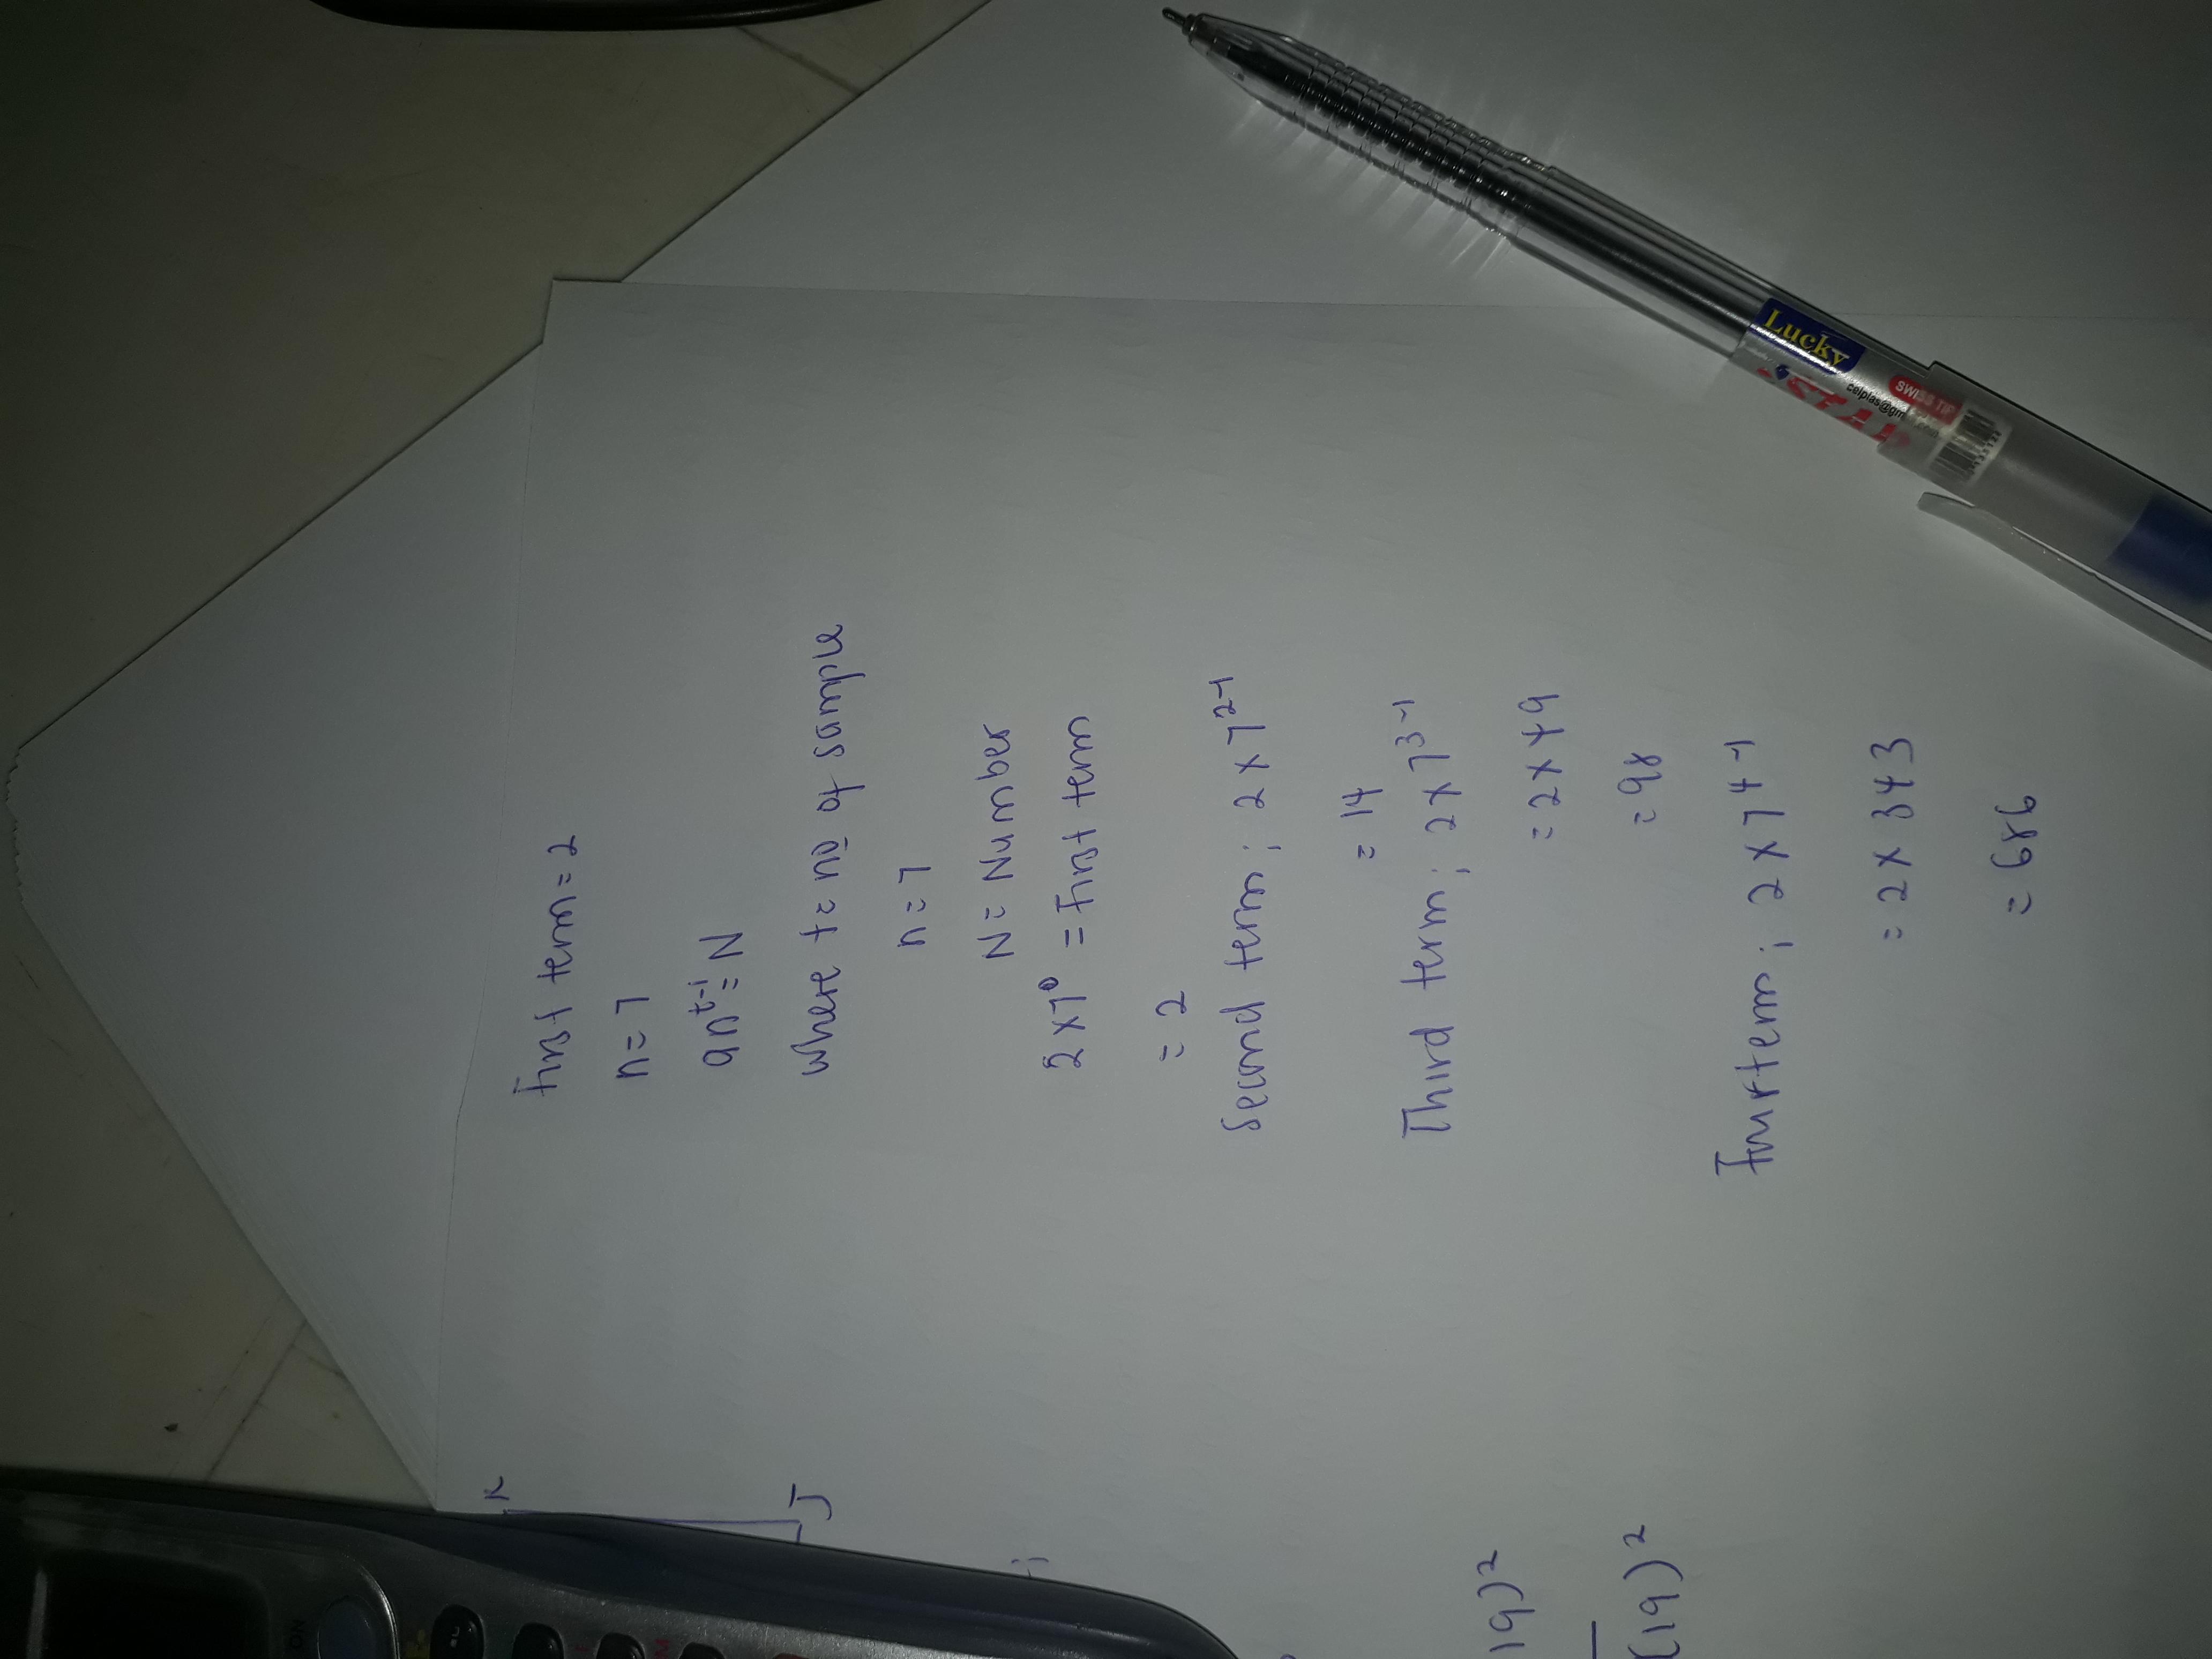 First term = 2
n = 7
an^t-1 = N
where t = no of sample
n = 7
N = Number
2 x 7^0 = First term
= 2
Second term; 2 x 7^2-1
= 14
Third term; 2 x 7^3-1
= 2 x 49
= 98
Fourterm; 2 x 7^4-1
= 2 x 343
= 686
K
J
19)²
(19)²
Lucky
STAR
SWISS TIP
celplas@gm
ON
M